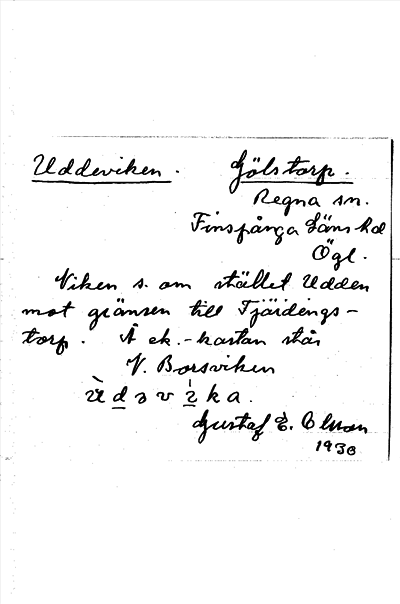 Uddeviken. Gölstorp.
Regna sn.
Finspånga Läns hd
Ögl.
Viken s. om stället Udden
mot gränsen till Tjärdings-
torp. Å ek.-kartan står
V. Borsviken
ù d ə v i k a.
Gustaf E. Olsson
1930